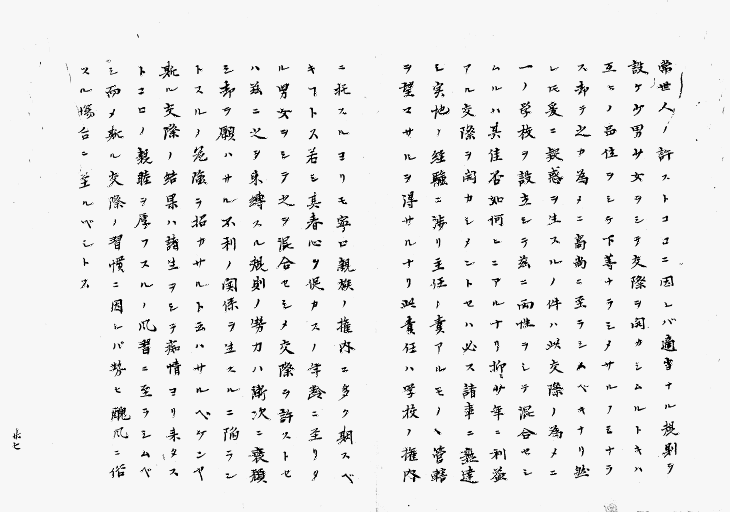 常世人ノ許ストコロニ因レバ適当ナル規則ヲ
設ケ少男少女ヲシテ交際ヲ開カシムルトキハ
互ヒノ品位ヲシテ下等ナラシメサルノミナラ
ス却テ之カ為メニ高尚ニ至ラシムベキナリ然
レ𪜈爰ニ疑惑ヲ生スルノ件ハ此交際ノ為メニ
一ノ学校ヲ設立シテ茲ニ両性ヲシテ混合セシ
ムルハ其佳否如何ンニアルナリ抑少年ニ利益
アル交際ヲ開カシメントセハ必ス諸事ニ熟達
シ実地ノ経験ニ渉リ主任ノ責アルモノヽ管轄
ヲ望マサルヲ得サルナリ此責任ハ学校ノ権内
ニ托スルヨリモ寧ロ親族ノ権内ニ多ク期スベ
キフトス若シ其春心ヲ促カスノ年齢ニ至リタ
ル男女ヲシテ之ヲ混合セシメ交際ヲ許ストセ
ハ茲ニ之ヲ束縛スル規則ノ勢力ハ漸次ニ衰頽
シ却ヲ願ハサル不利ノ関係ヲ生スルニ陥ラン
トスルノ危険ヲ招カサルト云ハサルベケンヤ
斯ル交際ノ結果ハ諸生ヲシテ痴情ヨリ来タス
トコロノ親睦ヲ厚フスルノ風習ニ至ラシムベ
シ而メ斯ル交際ノ習慣ニ因レバ勢ヒ醜風ニ俗
スル場合ニ至ルベシトス